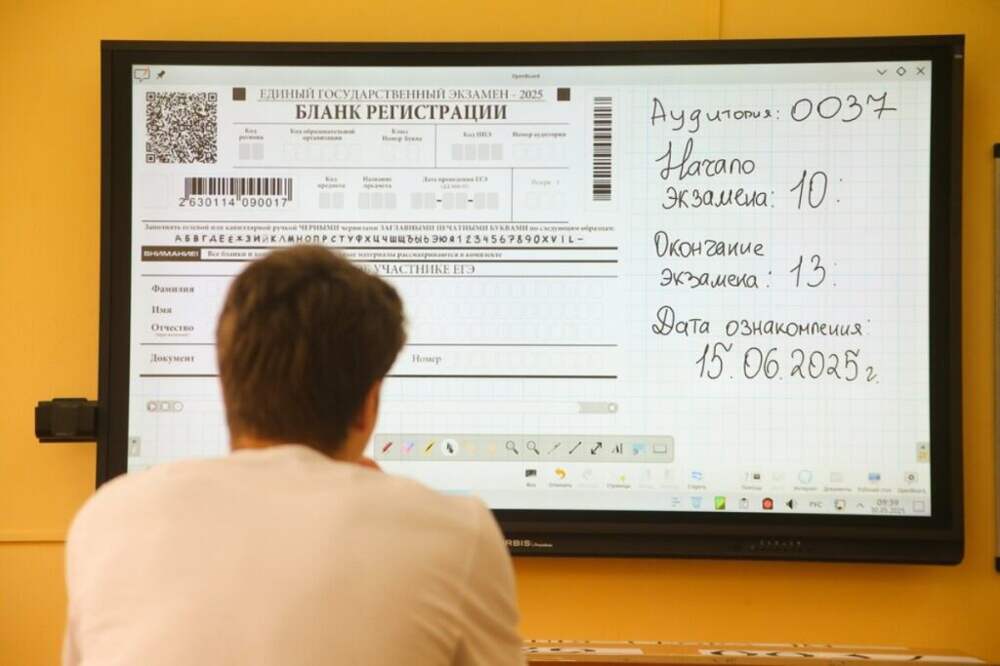 OpenBoard
ЕДИНЫЙ ГОСУДАРСТВЕННЫЙ ЭКЗАМЕН - 2025
БЛАНК РЕГИСТРАЦИИ
Код региона
Код образовательной организации
Класс
Номер Буква
Код ППЭ
Номер аудитории
2630114 090017
Код предмета
Название предмета
Дата проведения ЕГЭ
Заполнять гелевой или капиллярной ручкой ЧЕРНЫМИ чернилами ЗАГЛАВНЫМИ ПЕЧАТНЫМИ БУКВАМИ по следующим образцам:
АБВГДЕЁЖЗИЙКЛМНОПРСТУФХЦЧШЩЪЫЬЭЮЯ1234567890XVIL-
ВНИМАНИЕ!
Все бланки и материалы рассматриваются в комплекте
УЧАСТНИКЕ ЕГЭ
Фамилия
Имя
Отчество
Документ
Номер
Аудитория: 0037
Начало
экзамена: 10:
Окончание
экзамена: 13:
Дата ознакомления:
15.06.2025г.
РУС
09:39
30.05.2025